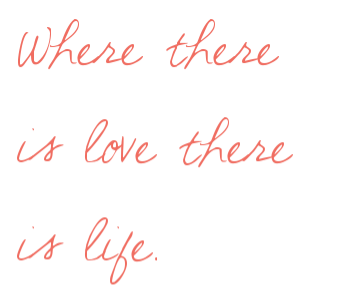 Where there
is love there
is life.